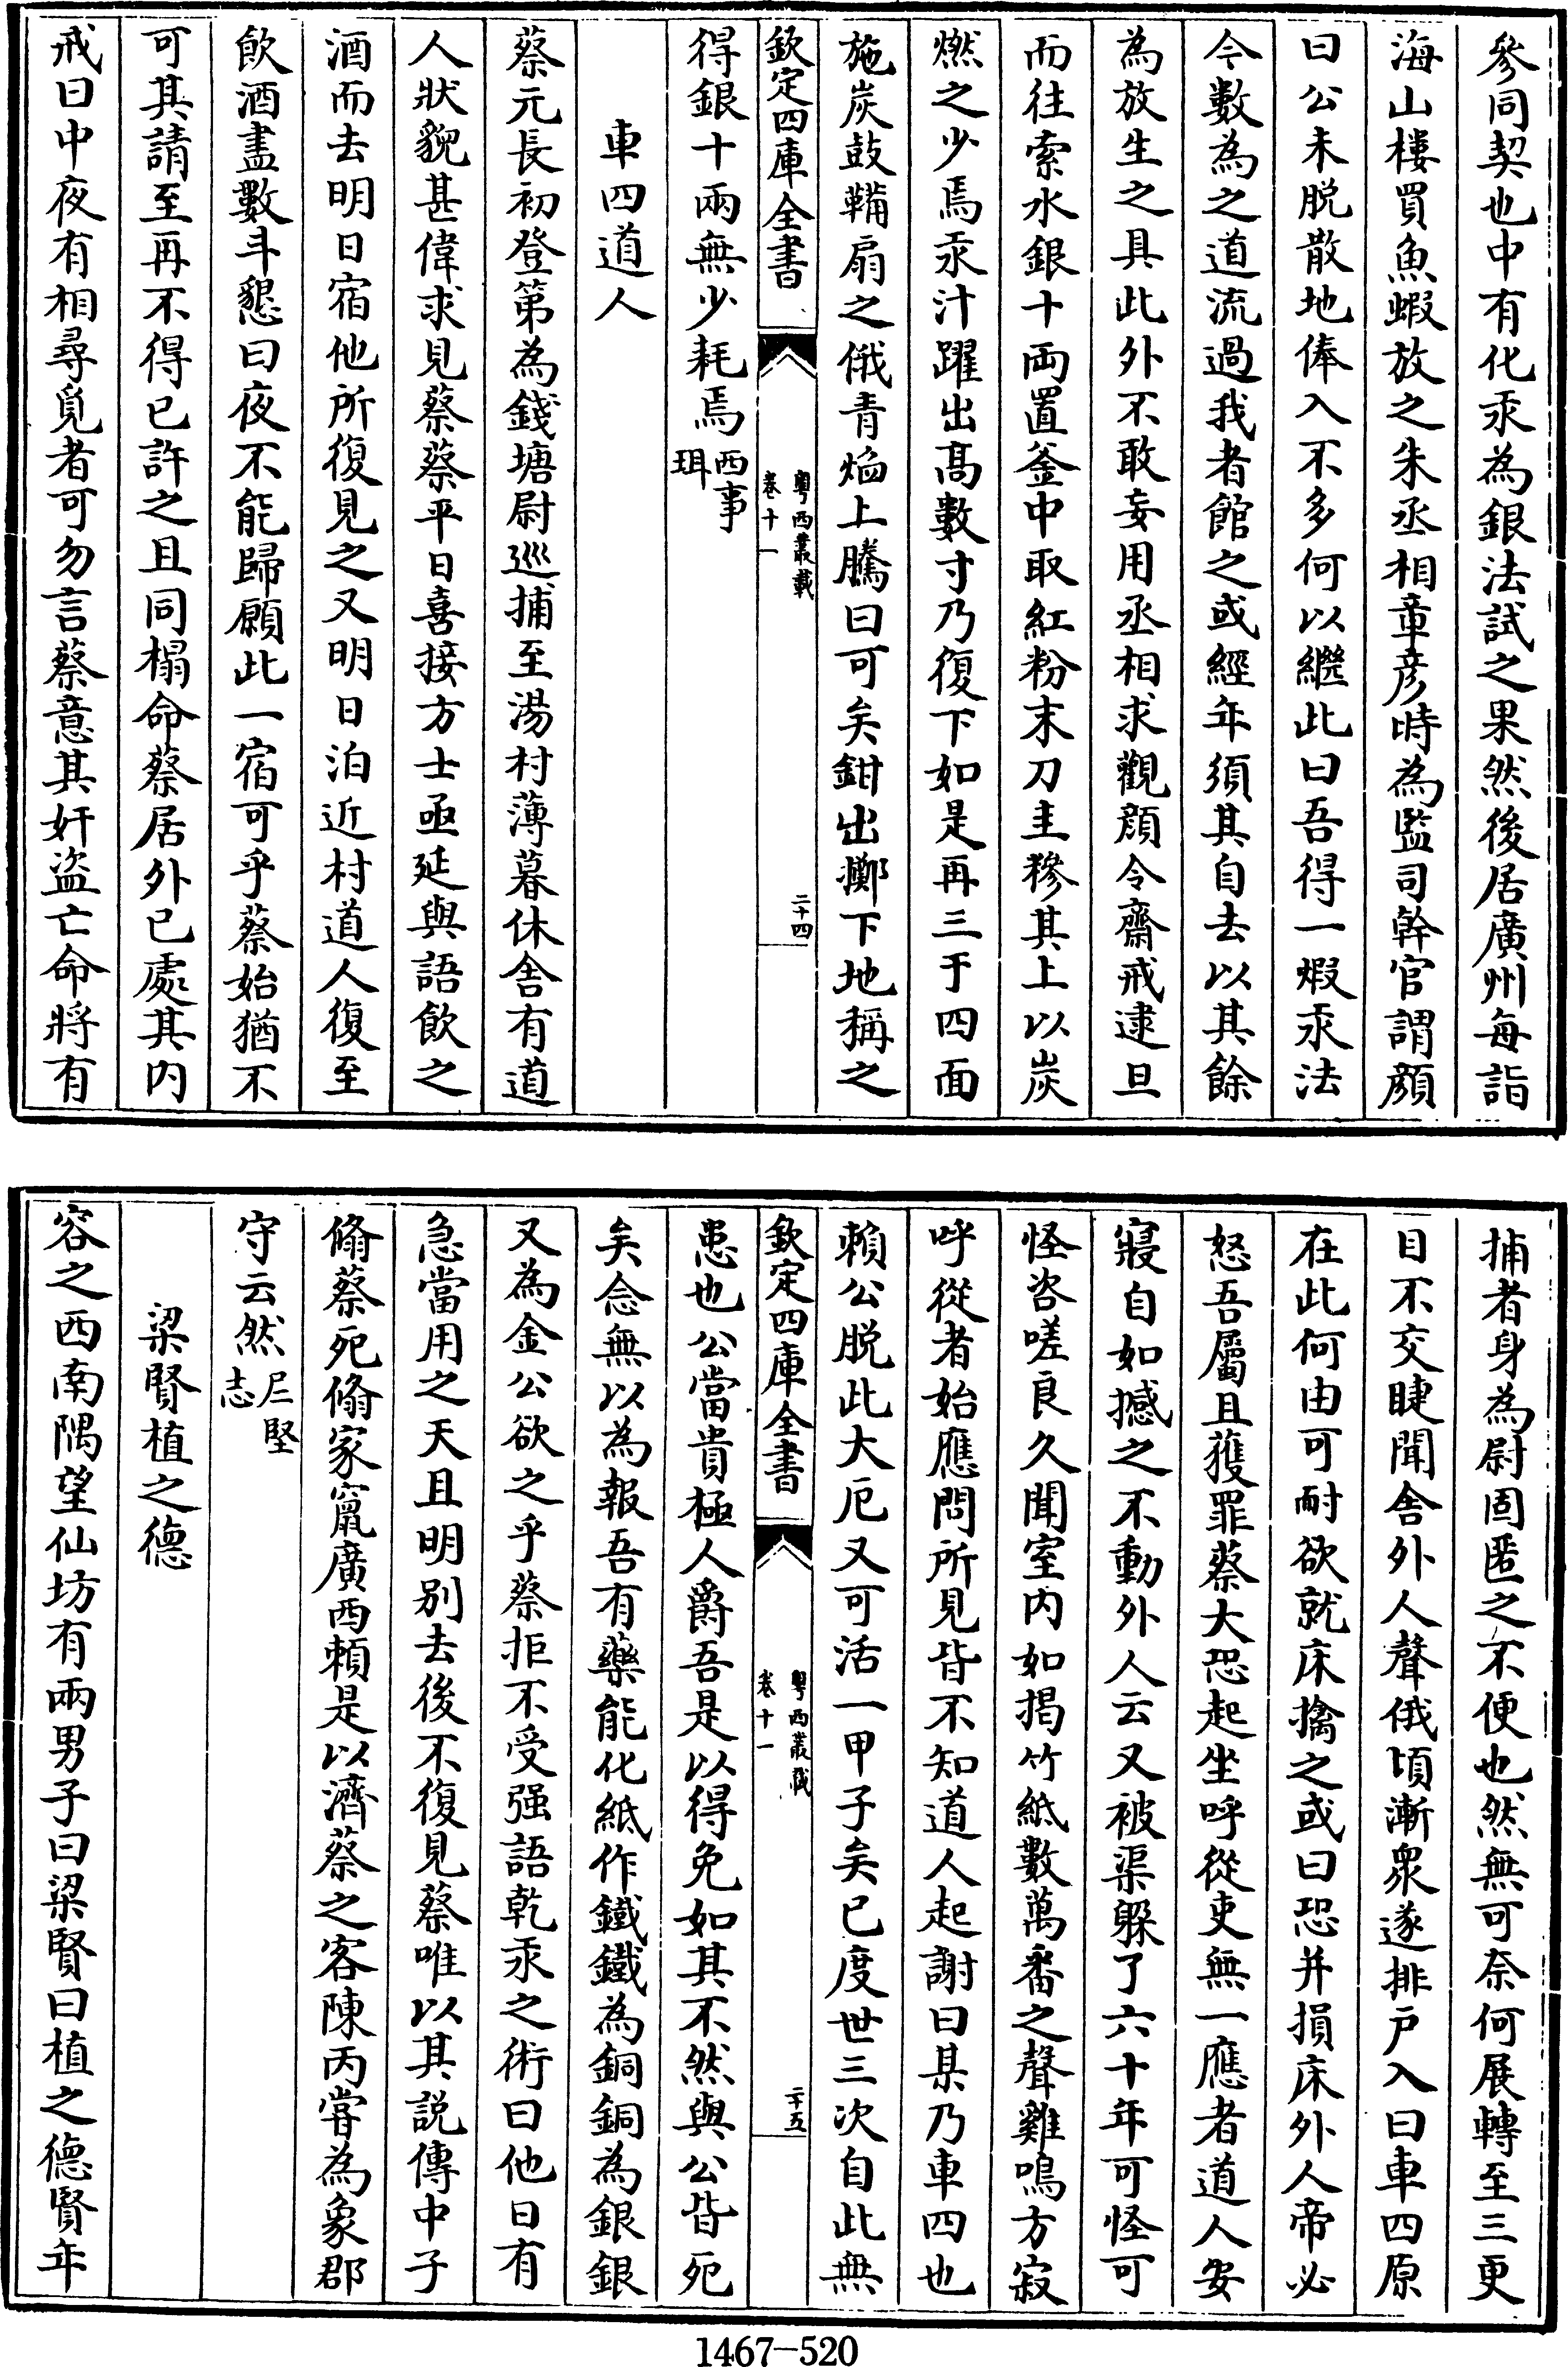 參同契也中有化汞為銀法試之果然後居廣州每詣
海山樓買魚蝦放之朱丞相章彦時為監司幹官謂顔
曰公未脱散地俸入不多何以繼此曰吾得一煆汞法
今數為之道流過我者館之或經年須其自去以其餘
為放生之具此外不敢妄用丞相求觀顔令齋戒逮旦
而往索水銀十両置釜中取紅粉末刀圭糝其上以炭
燃之少焉汞汁躍出髙數寸乃復下如是再三于四面
施炭鼓鞴扇之俄青焰上騰曰可矣鉗出擲下地稱之
欽定四庫全書
粤西叢載
卷十一
二十四
得銀十兩無少耗焉西事珥
車四道人
蔡元長初登第為錢塘尉巡捕至湯村薄暮休舍有道
人狀貌甚偉求見蔡蔡平日喜接方士亟延與語飲之
酒而去明日宿他所復見之又明日泊近村道人復至
飲酒盡數斗懇曰夜不能歸願此一宿可乎蔡始猶不
可其請至再不得已許之且同榻命蔡居外已處其内
戒曰中夜有相尋覓者可勿言蔡意其奸盜亡命將有
捕者身為尉固匿之不便也然無可奈何展轉至三更
目不交睫聞舍外人聲俄頃漸衆遂排戸入曰車四原
在此何由可耐欲就床擒之或曰恐并損床外人帝必
怒吾屬且獲罪蔡大恐起坐呼從吏無一應者道人安
寢自如撼之不動外人云又被渠躱了六十年可怪可
怪咨嗟良久聞室内如揭竹紙數萬番之聲雞鳴方寂
呼從者始應問所見皆不知道人起謝曰某乃車四也
賴公脱此大厄又可活一甲子矣已度世三次自此無
欽定四庫全書
粤西叢載
卷十一
二十五
患也公當貴極人爵吾是以得免如其不然與公皆死
矣念無以為報吾有藥能化紙作鐵鐵為銅銅為銀銀
又為金公欲之乎蔡拒不受强語乾汞之術曰他日有
急當用之天且明别去後不復見蔡唯以其説傳中子
翛蔡死翛家竄廣西頼是以濟蔡之客陳丙嘗為象郡
守云然𡰱堅志
梁賢植之德
容之西南隅望仙坊有兩男子曰梁賢曰植之德賢年
1467-520